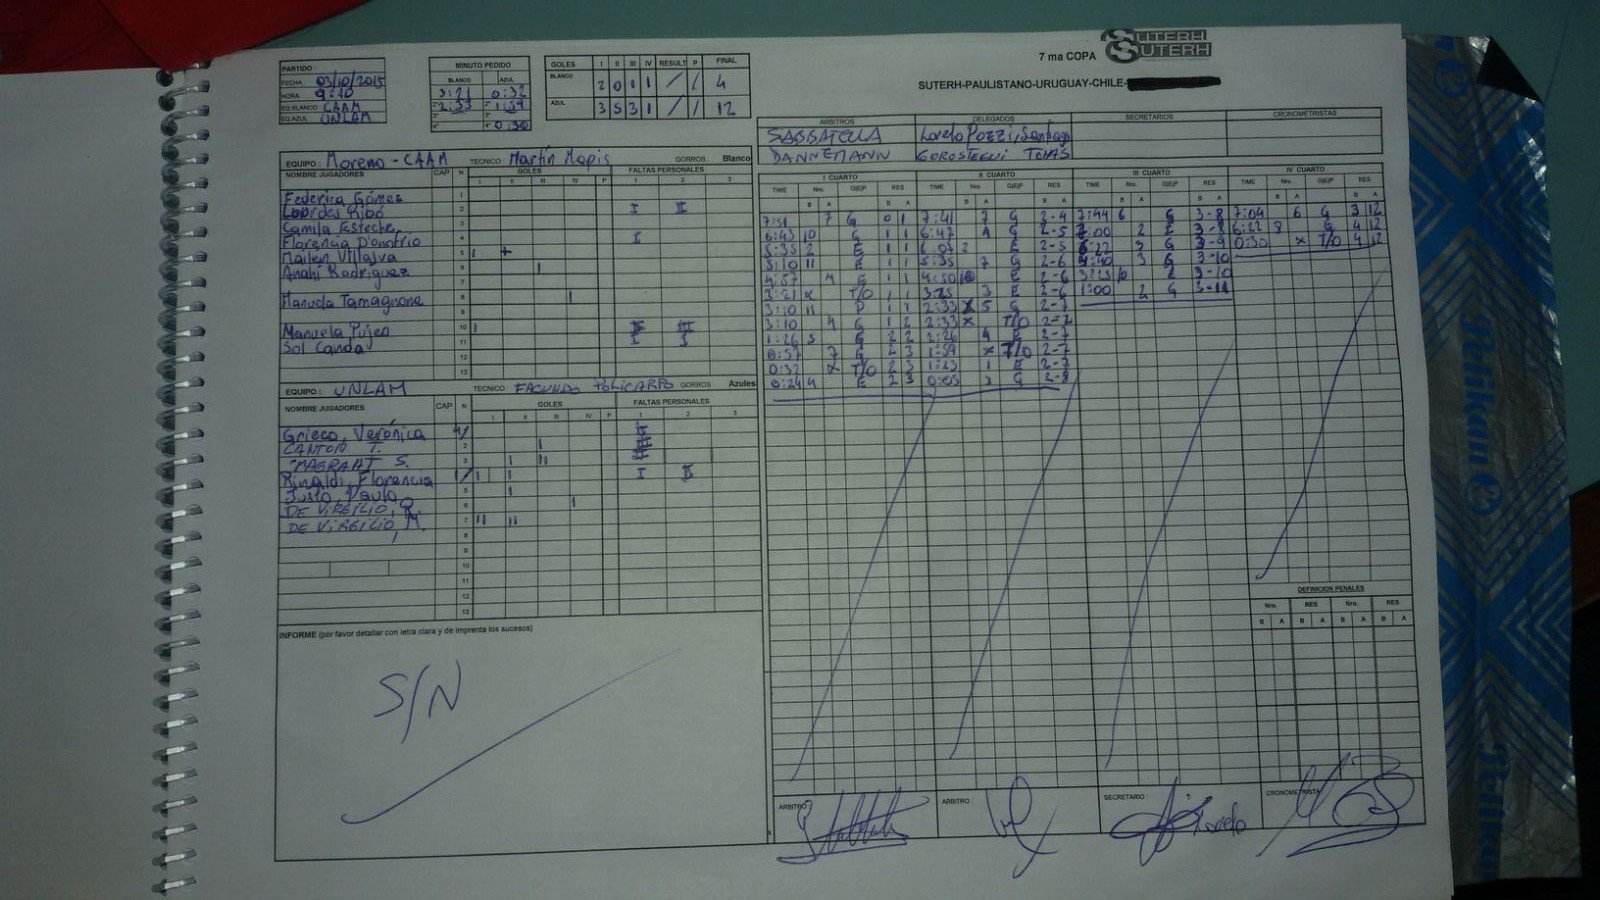 7 ma COPA SUTERH
SUTERH
SUTERH-PAULISTANO-URUGUAY-CHILE-
PARTIDO:
FECHA 03/10/2015
HORA 9:10
EQ BLANCO CAAM
EQ AZUL UNLAM
MINUTO PEDIDO
BLANCO AZUL
3:21 0:32
2:33 1:59
0:30
GOLES I II III IV RESULT P FINAL
BLANCO 2 0 1 1 / / 4
AZUL 3 5 3 1 / / 12
ARBITROS DELEGADOS SECRETARIOS CRONOMETRISTAS
SABBATELLA Loreto Pozzi, Santiago
DANNEMANN GOROSTEGUI TOMAS
EQUIPO: Moreno - CAAM TECNICO Martín Mapis GORROS Blanco
NOMBRE JUGADORES CAP N GOLES FALTAS PERSONALES
I II III IV P 1 2 3
Federica Gómez 1
Lourdes Ribó 2 I II
Camila Esteche 3
Florencia Donofrio 4 I
Mailen Villalva 5
Anahí Rodriguez 6 I
7
Manuela Tamagnone 8 I
9
Manuela Pujeo 10 I
Sol Canda 11
12
13
EQUIPO: UNLAM TECNICO FACUNDO POLICARPO GORROS Azules
NOMBRE JUGADORES CAP N GOLES FALTAS PERSONALES
I II III IV P 1 2 3
Grieco, Verónica
CANTON T. 2 I
MAGRAAT S. 3 I II
Rinaldi, Florencia I I I II
Justo, Paula 5 I
DE VIRGILIO, 6 I
DE VIRGILIO, M. 7 II II
8
9
10
11
12
13
INFORME (por favor detallar con letra clara y de imprenta los sucesos)
S/N
I CUARTO II CUARTO III CUARTO IV CUARTO
TIME Nro. G|E|P RES TIME Nro. G|E|P RES TIME Nro. G|E|P RES TIME Nro. G|E|P RES
B A B A B A B A B A B A B A B A
7:51 7 G 0 1 7:41 7 G 2-4 7:44 6 G 3-8 7:04 6 G 3 12
6:43 10 G 1 1 6:47 4 G 2-5 7:00 2 E 3-8 6:22 8 G 4 12
5:35 2 E 1 1 6:07 2 E 2-5 3 G 3-9 0:30 x T/O 4 12
5:10 11 E 1 1 5:35 7 G 2-6 4:40 3 G 3-10
4:57 4 E 1 1 4:50 10 E 2-6 3:25 10 E 3-10
3:21 x T/O 1 1 3:25 3 E 2-6 1:00 2 G 3-11
3:10 11 P 1 1 2:33 5 G 2-7
3:10 4 G 1 2 2:33 x T/O 2-7
1:26 5 G 2 2 2:26 4 E 2-7
0:57 7 G 2 3 1:59 x T/O 2-7
0:32 x T/O 2 3 1:23 1 E 2-7
0:24 4 E 2 3 0:05 2 G 2-8
DEFINICION PENALES
Nro. RES Nro. RES
B A B A B A B A
ARBITRO: ARBITRO: SECRETARIO CRONOMETRISTA
Loreto
Pelikan
Pelikan